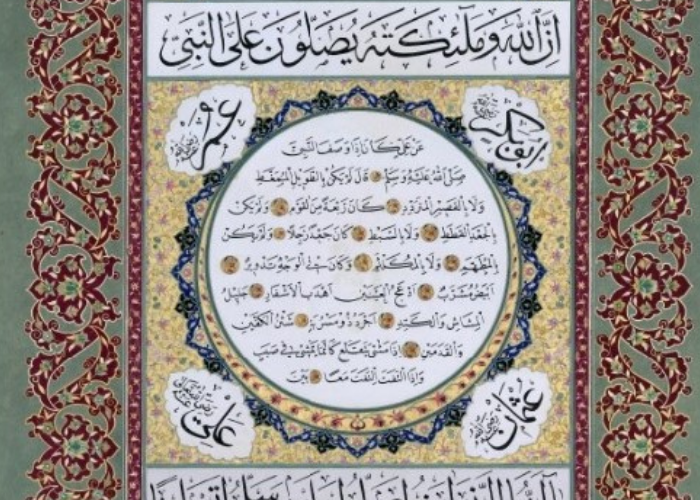 إن الله وملائكته يصلون على النبي
أبو بكر رضي الله عنه
عمر رضي الله عنه
عن علي كان إذا وصف النبي
صلى الله عليه وسلم قال لم يكن بالطويل الممغط
ولا بالقصير المتردد كان ربعة من القوم ولم يكن
بالجعد القطط ولا بالسبط كان جعدا رجلا ولم يكن
بالمطهم ولا بالمكلثم وكان في الوجه تدوير
أبيض مشرب أدعج العينين أهدب الأشفار جليل
المشاش والكتد أجرد ذو مسربة شثن الكفين
والقدمين إذا مشى يتقلع كأنما يمشي في صبب
وإذا التفت التفت معا بين
عثمان رضي الله عنه
علي رضي الله تعالى عنه